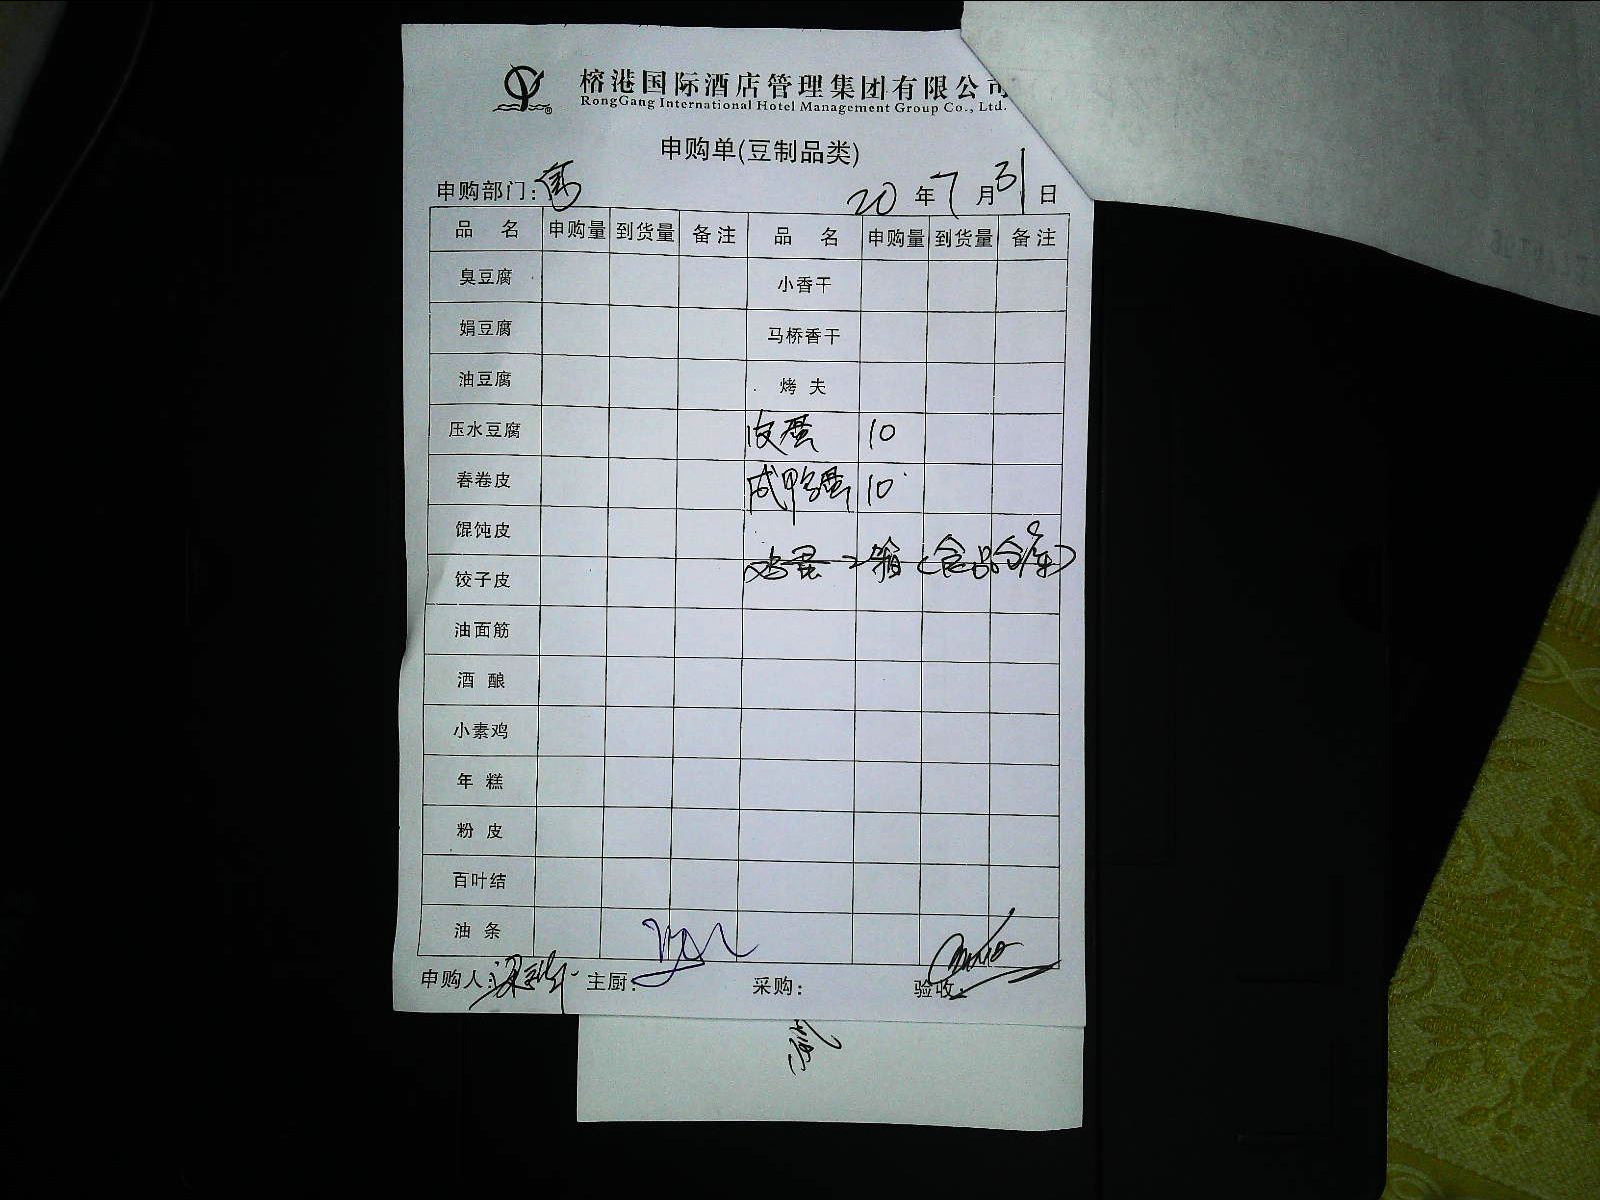 榕港国际酒店管理集团有限公司
RongGang International Hotel Management Group Co., Ltd.
申购单(豆制品类)
申购部门: 20 年 7 月 31 日
品 名 申购量 到货量 备注 品 名 申购量 到货量 备注
臭豆腐 小香干
娟豆腐 马桥香干
油豆腐 烤 夫
压水豆腐 皮蛋 10
春卷皮 咸鸭蛋 10
馄饨皮
鸡蛋 2箱 (食品仓库)
饺子皮
油面筋
酒 酿
小素鸡
年 糕
粉 皮
百叶结
油 条
申购人: 主厨: 采购: 验收: